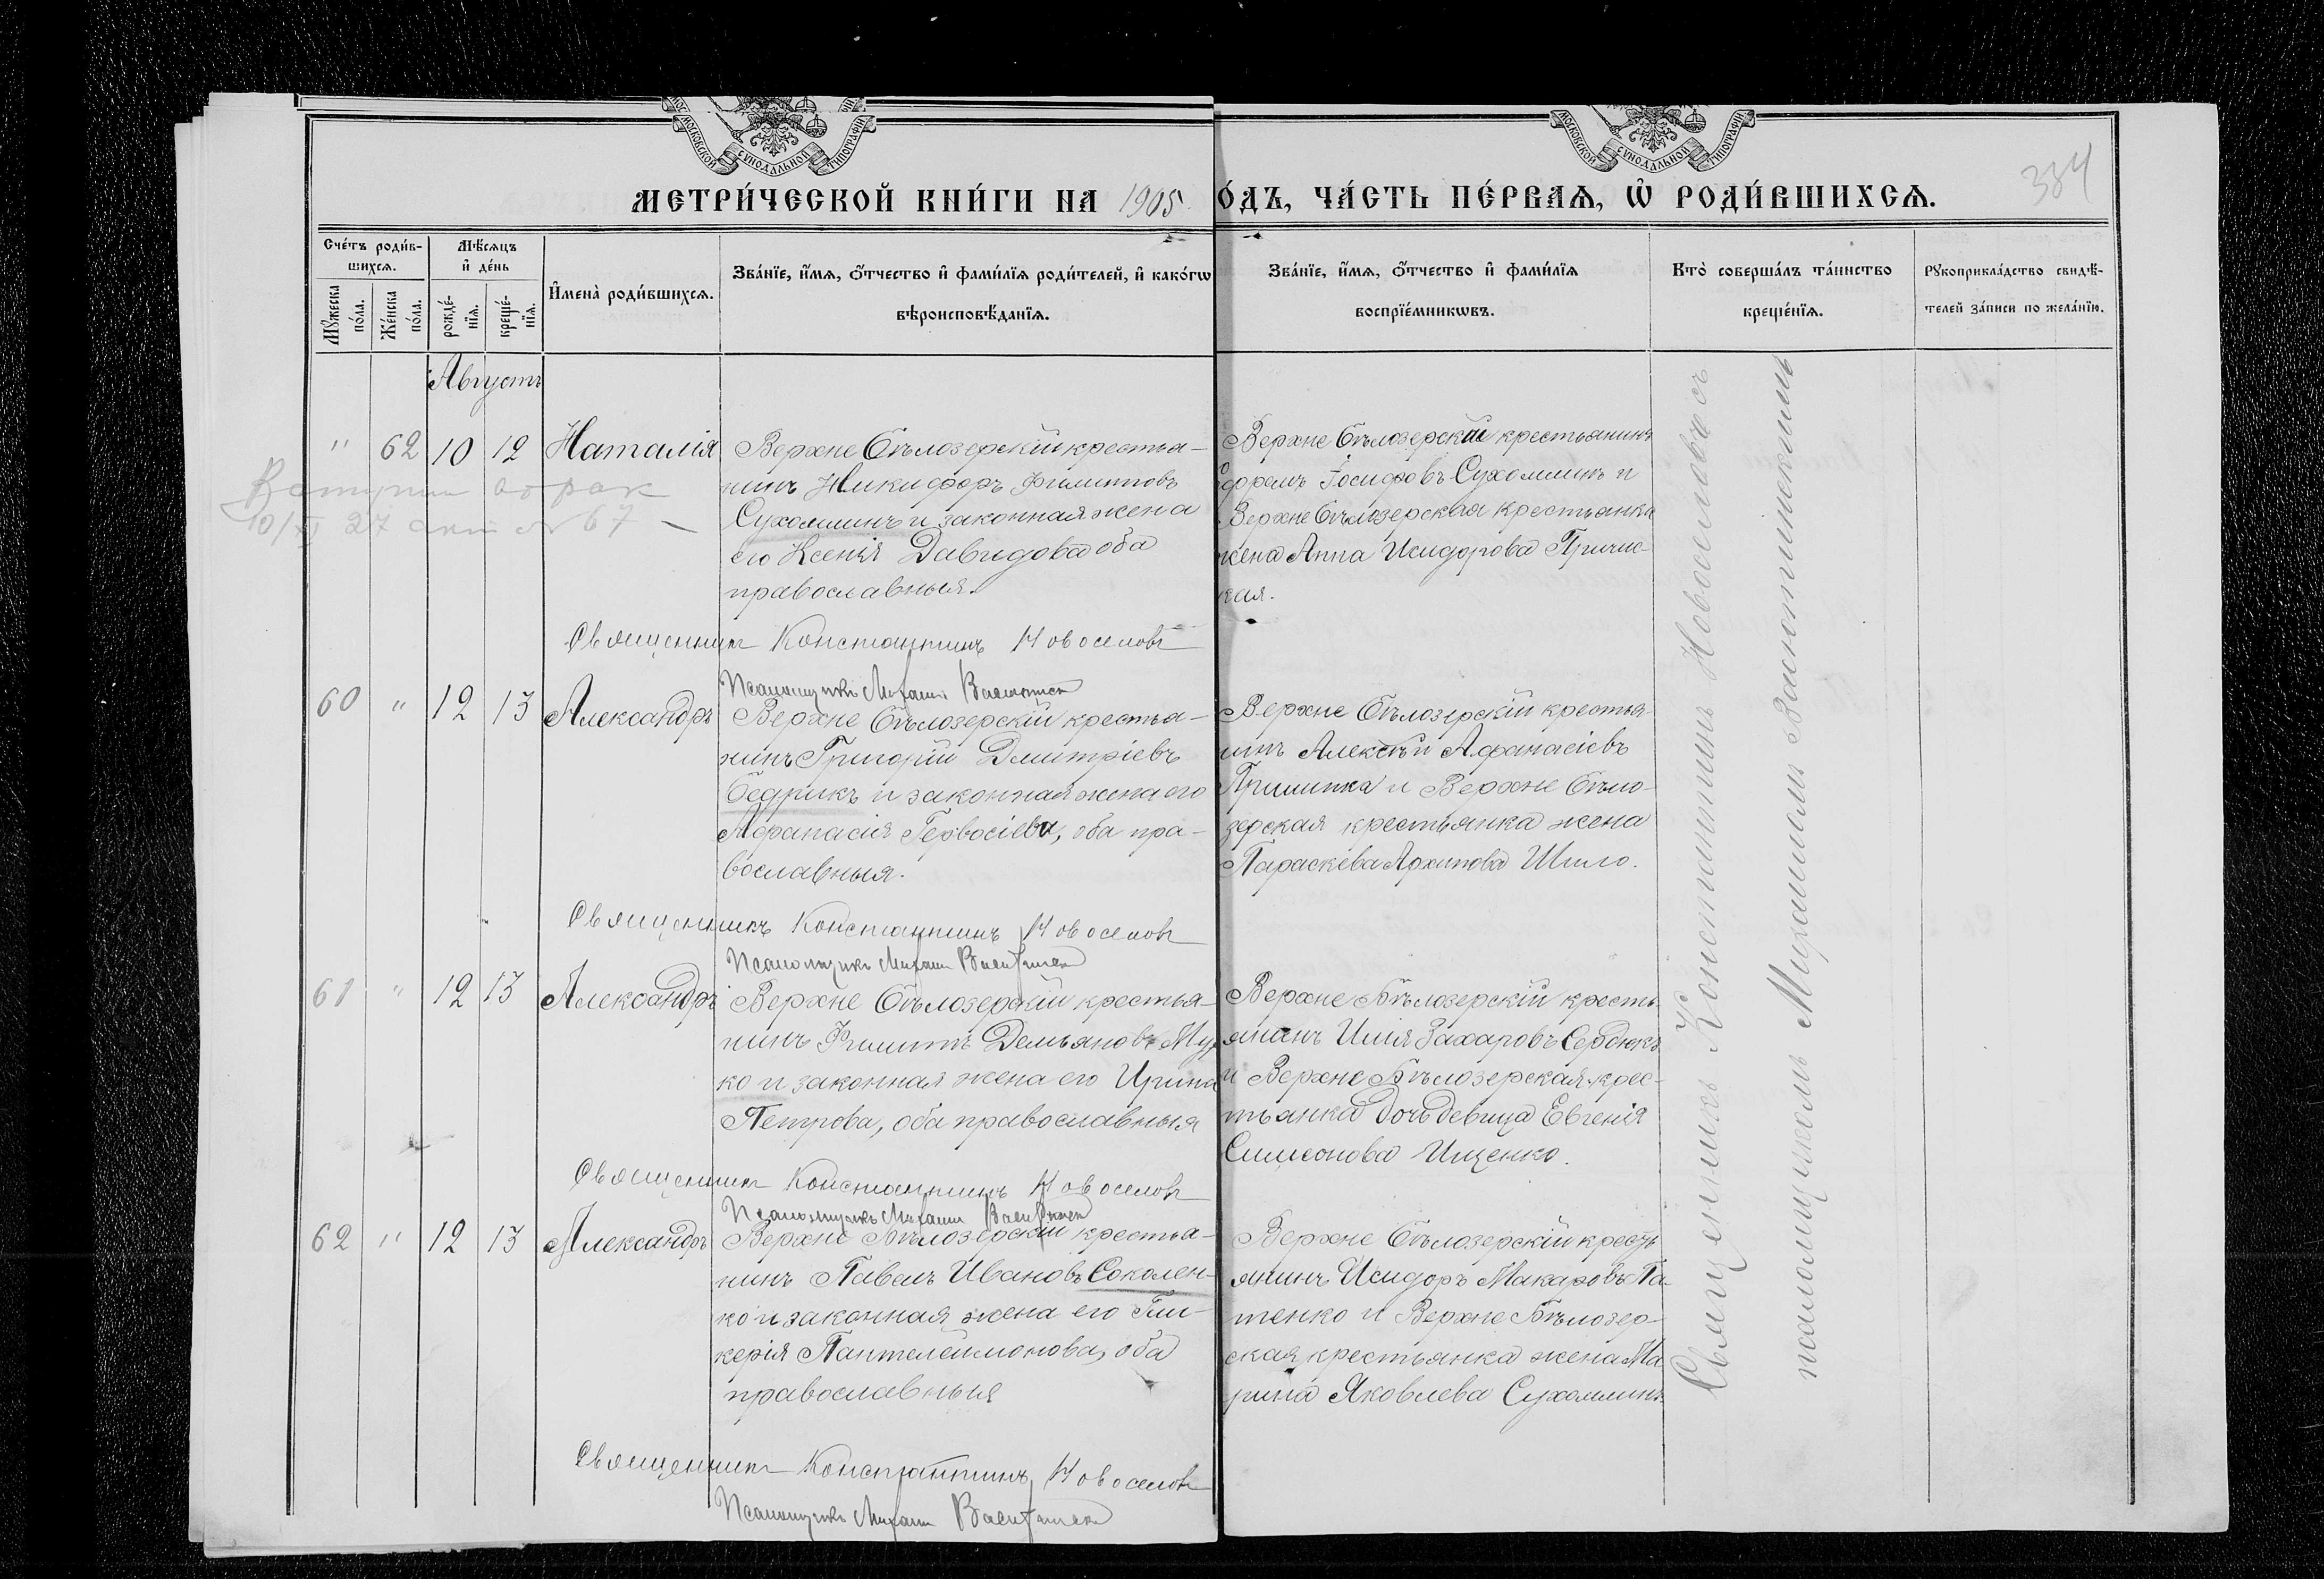 МОСКОВСКОЙ СѴНОДАЛЬНОЙ ТИПОГРАФІИ
МОСКОВСКОЙ СѴНОДАЛЬНОЙ ТИПОГРАФІИ
МЕТРИ́ЧЕСКОЙ КНИ́ГИ НА 1905 ОДЪ, ЧА́СТЬ ПЕ́РВАѦ, Ѡ РОДИ́ВШИХСѦ.
334
Сче́тъ роди́в-
шихсѧ.
Мꙋ́жеска по́ла.
Же́нска по́ла.
Мѣ́сѧцъ
и҆ де́нь
рожде́-
нїѧ.
креще́-
нїѧ.
И҆мена̀ роди́вшихсѧ.
Зва́нїе, и҆́мѧ, ѻ҆́тчество и҆ фами́лїѧ роди́телей, и҆ како́гѡ
вѣроисповѣ́данїѧ.
Зва́нїе, и҆́мѧ, ѻ҆́тчество и҆ фами́лїѧ
воспрїе́мникѡвъ.
Кто̀ соверша́лъ та́инство
креще́нїѧ.
Рꙋкоприкла́дство свидѣ́-
телей за́писи по жела́нїю.
Августъ
" 62 10 12 Наталія
Верхне Бѣлозерскій крестья-
нинъ Никифоръ Филипповъ
Сухомлинъ и законная жена
его Ксенія Давидова оба
православныя.
Верхне Бѣлозерскій крестьянинъ
Іосифовъ Сухомлинъ и
Верхне Бѣлозерская крестьянка
жена Анна Исидорова
кая.
Вступил в брак
10/XI 27 акт № 67
Священникъ Константинъ Новоселовъ
Псаломщикъ Михаилъ
60 " 12 13 Александръ
Верхне Бѣлозерскій крестья-
нинъ Григорій Дмитріевъ
Бедрикъ и законная жена его
Афанасія Гервасіева, оба пра-
вославныя.
Верхне Бѣлозерскій крестья-
нинъ Алексѣй Афанасіевъ
и Верхне Бѣло-
зерская крестьянка жена
Параскева Архипова Шило.
Священникъ Константинъ Новоселовъ
Псаломщикъ Михаилъ
61 " 12 13 Александръ
Верхне Бѣлозерскій крестья-
нинъ Филиппъ Демьяновъ
ко и законная жена его Ирина
Петрова, оба православныя
Верхне Бѣлозерскій кресть-
янинъ Илія Захаровъ Сердюкъ
и Верхне Бѣлозерская крес-
тьянка дочь девица Евгенія
Симеонова Ищенко.
Священникъ Константинъ Новоселовъ
Псаломщикъ Михаилъ
62 " 12 13 Александръ
Верхне Бѣлозерскій крестья-
нинъ Павелъ Ивановъ Соколен-
ко и законная жена его Гли-
керія Пантелеимонова, оба
православныя
Верхне Бѣлозерскій кресть
янинъ Исидоръ Макаровъ Га-
тенко и Верхне Бѣлозер-
ская крестьянка жена Ма
рина Яковлева Сухомлинъ.
Священникъ Константинъ Новоселовъ
Псаломщикъ Михаилъ
Священникъ Константинъ Новоселовъ съ
псаломщикомъ Михаиломъ